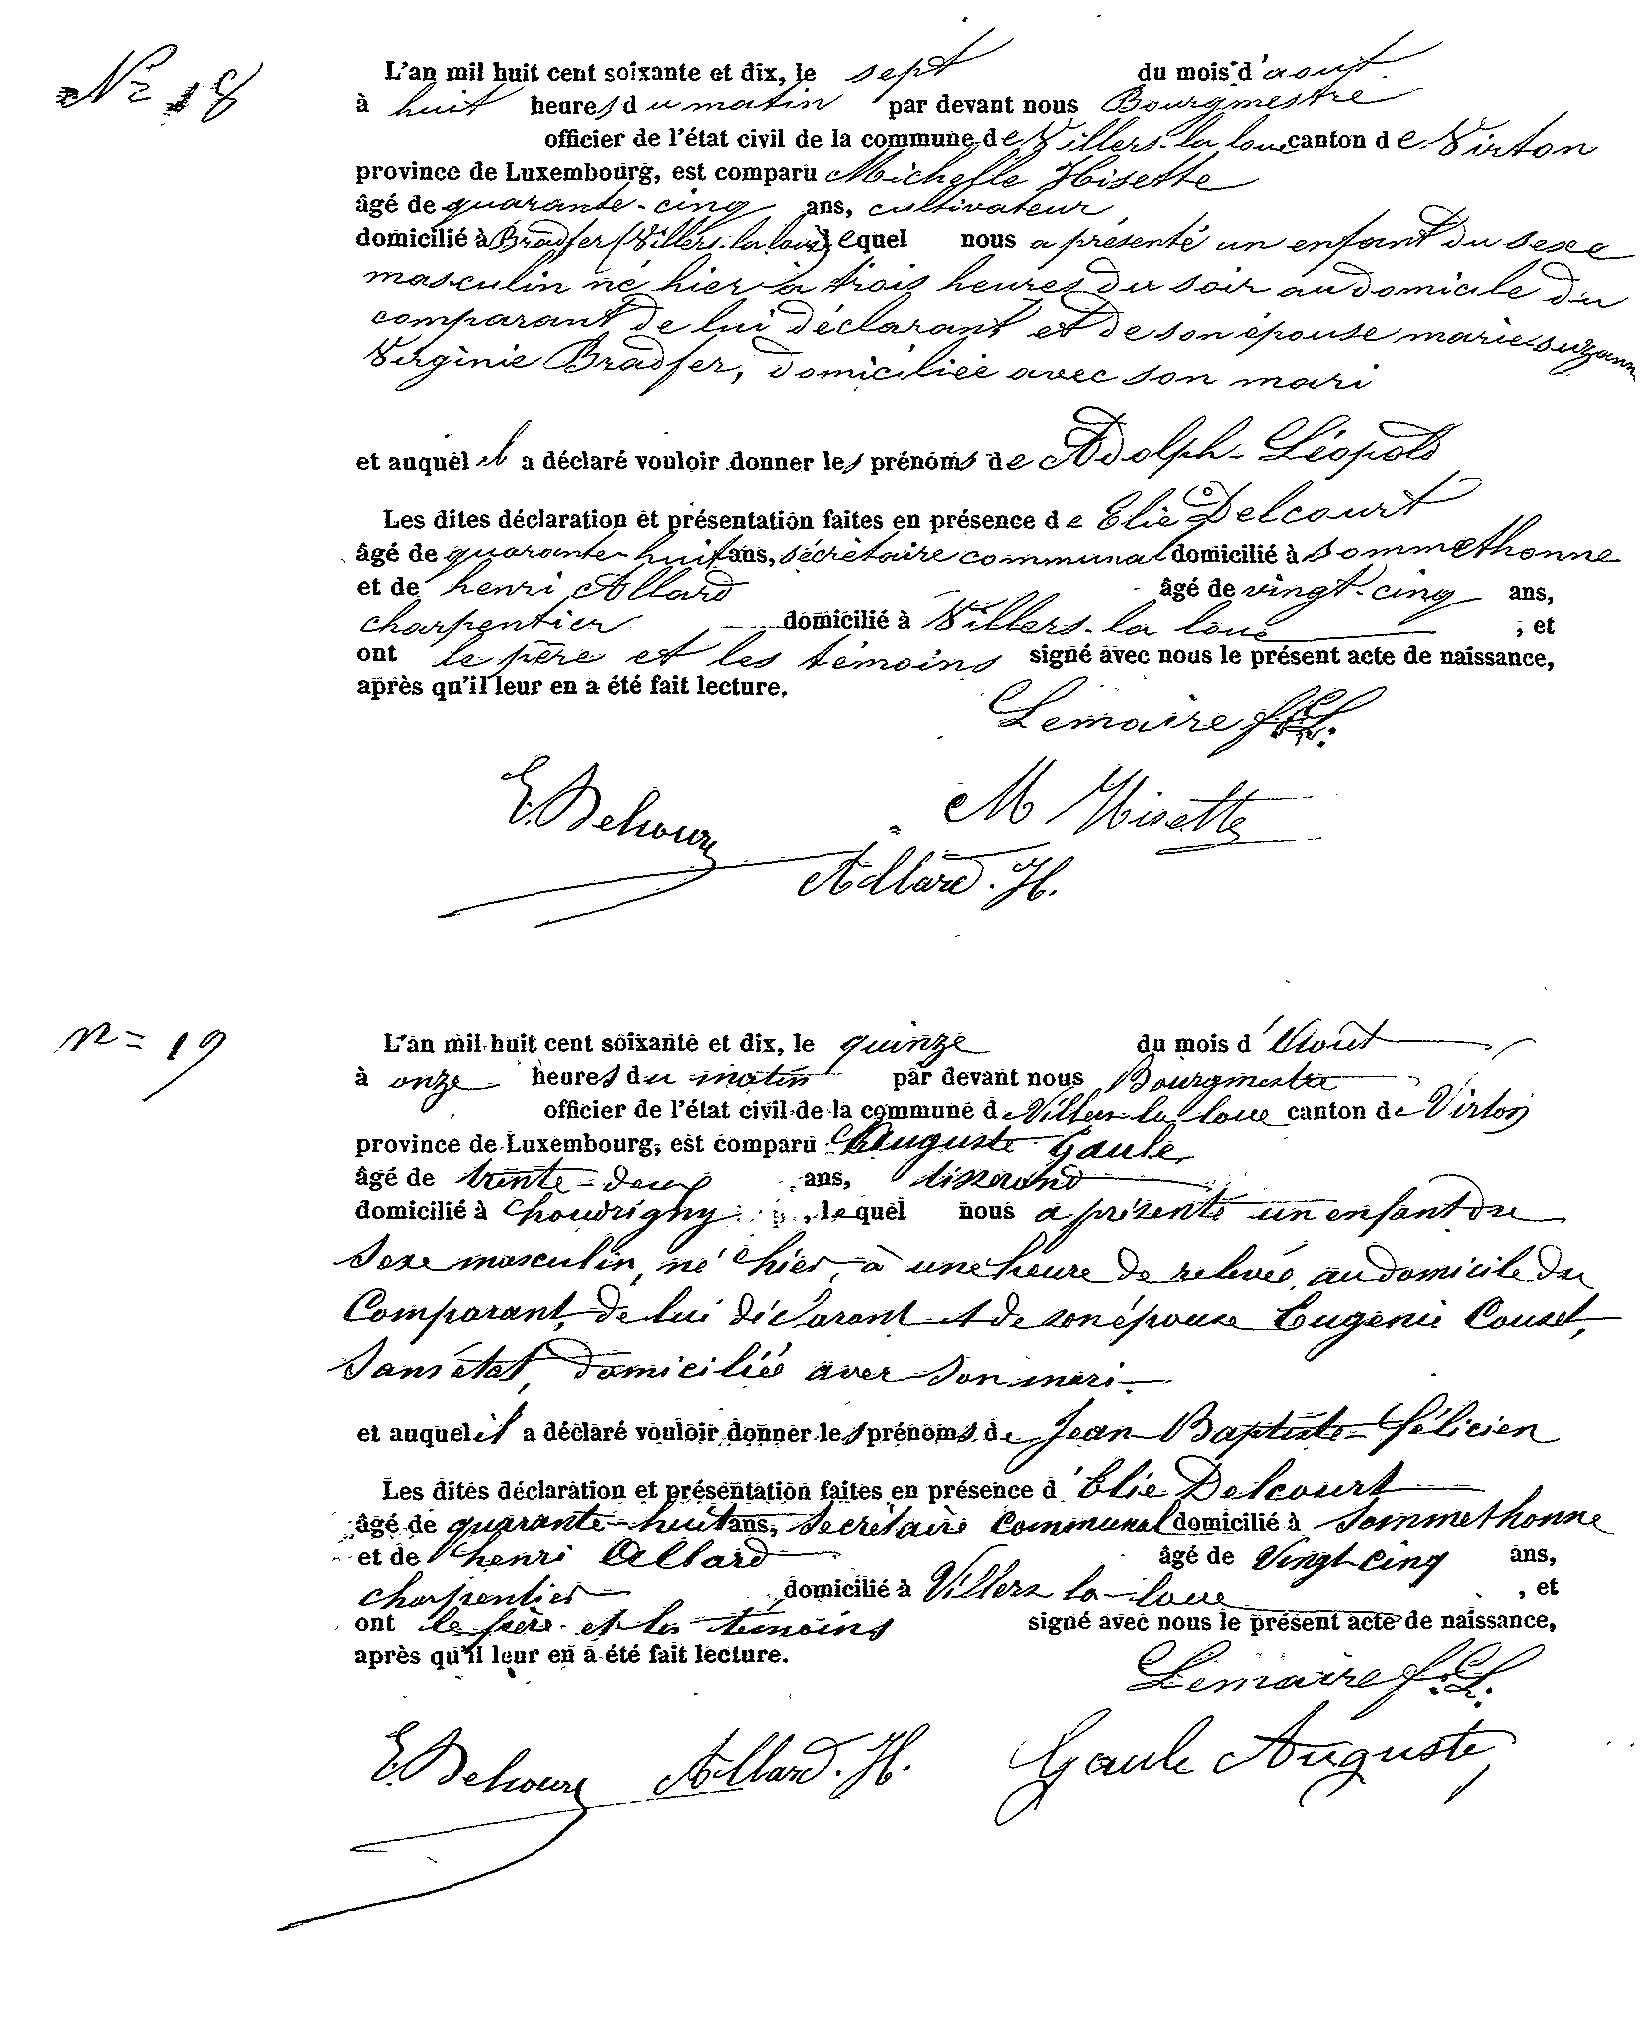 N° 18
L'an mil huit cent soixante et dix, le sept du mois d'aout
à huit heures du matin par devant nous Bourgmestre
officier de l'état civil de la commune de Villers-la loue canton de Virton
province de Luxembourg, est comparu Michelle Hisette
âgé de quarante-cinq ans, cultivateur,
domicilié à Bradfer (Villers-la loue) lequel nous a présenté un enfant du sexe
masculin né hier à trois heures du soir au domicile du
comparant de lui déclarant et de son épouse marie suzann
Virginie Bradfer, domiciliée avec son mari
et auquel il a déclaré vouloir donner les prénoms de Adolph-Léopold
Les dites déclaration et présentation faites en présence de Elie Delcourt
âgé de quarante-huit ans, sécrètaire communal domicilié à Sommethonne
et de henri Allard âgé de vingt-cinq ans,
charpentier domicilié à Villers-la loue , et
ont le père et les témoins signé avec nous le présent acte de naissance,
après qu'il leur en a été fait lecture.
Lemaire f.f.
M Hisette
E. Delcourt
Allard. H.
n= 19
L'an mil huit cent soixante et dix, le quinze du mois d'Aout
à onze heures du matin par devant nous Bourgmestre
officier de l'état civil de la commune de Villers la loue canton de Virton
province de Luxembourg, est comparu Auguste Gaule,
âgé de trente-deux ans, tisserand
domicilié à houdrigny , lequel nous a présenté un enfant du
Sexe masculin, né hier, à une heure de relevée, au domicile du
Comparant, de lui déclarant et de son épouse Eugénie Couset,
Sans état, domiciliée avec son mari.
et auquel il a déclaré vouloir donner les prénoms de Jean Baptiste-félicien
Les dites déclaration et présentation faites en présence d'Elie Delcourt
âgé de quarante-huit ans, Secrétaire Communal domicilié à Sommethonne
et de henri Allard âgé de Vingt-cinq ans,
charpentier domicilié à Villers la-loue , et
ont le père et les témoins signé avec nous le présent acte de naissance,
après qu'il leur en a été fait lecture.
Lemaire f.f.
E. Delcourt Allard. H. Gaule Auguste